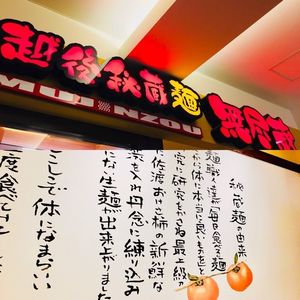 越後秘蔵麺 無尽蔵
MUJINZOU
秘蔵麺の由来
麺職人達が「毎日食べる麺
だから体に本当に良いものを」と
研究に研究を重ね最上級の
に佐渡おけさ柿の新鮮な
葉を入れ丹念に練り込み
な、生麺が出来上りました
こしで体になまらいい
度食べてみ